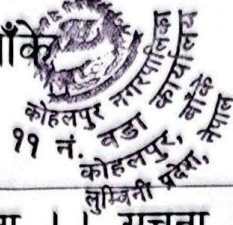 बाँके
कोहलपुर नगरपालिका
११ नं. वडा कार्यालय
कोहलपुर, बाँके
लुम्बिनी प्रदेश, नेपाल
सूचना